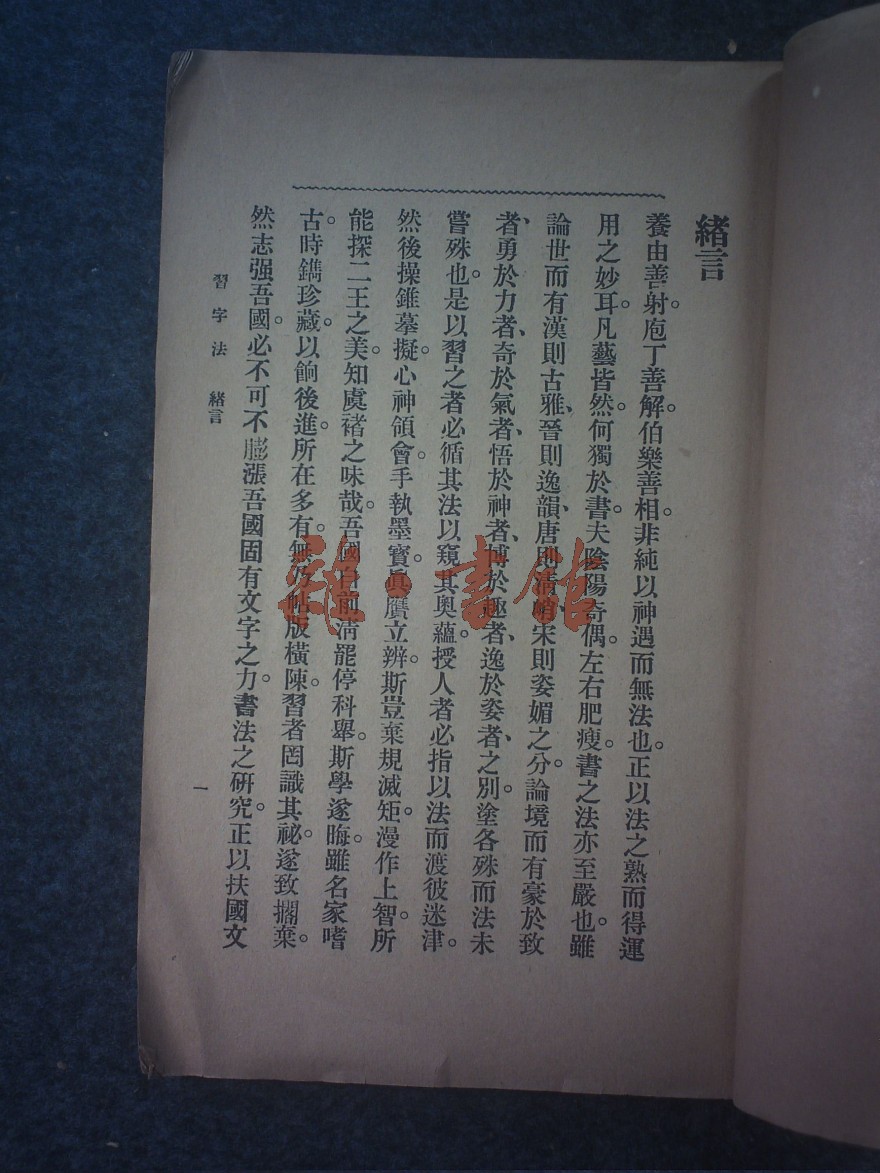 緒言
養由善射。庖丁善解。伯樂善相。非純以神遇而無法也。正以法之熟而得運
用之妙耳。凡藝皆然。何獨於書。夫陰陽奇偶。左右肥瘦。書之法亦至嚴也。雖
論世而有漢則古雅、晉則逸韻、唐則清、宋則姿媚之分。論境而有豪於致
者、勇於力者、奇於氣者、悟於神者、博於趣者、逸於姿者、之別。塗各殊而法未
嘗殊也。是以習之者必循其法以窺其奧蘊。授人者必指以法而渡彼迷津。
然後操錐摹擬。心神領會。手執墨寶。眞贋立辨。斯豈棄規滅矩。漫作上智。所
能探二王之美。知虞褚之味哉。吾國自前淸罷停科舉。斯學遂晦。雖名家嗜
古。時鐫珍藏。以餉後進。所在多有。無帖版橫陳。習者罔識其祕。遂致擱棄。
然志强吾國。必不可不膨漲吾國固有文字之力。書法之硏究。正以扶國文
習字法 緒言
一
雜·書館